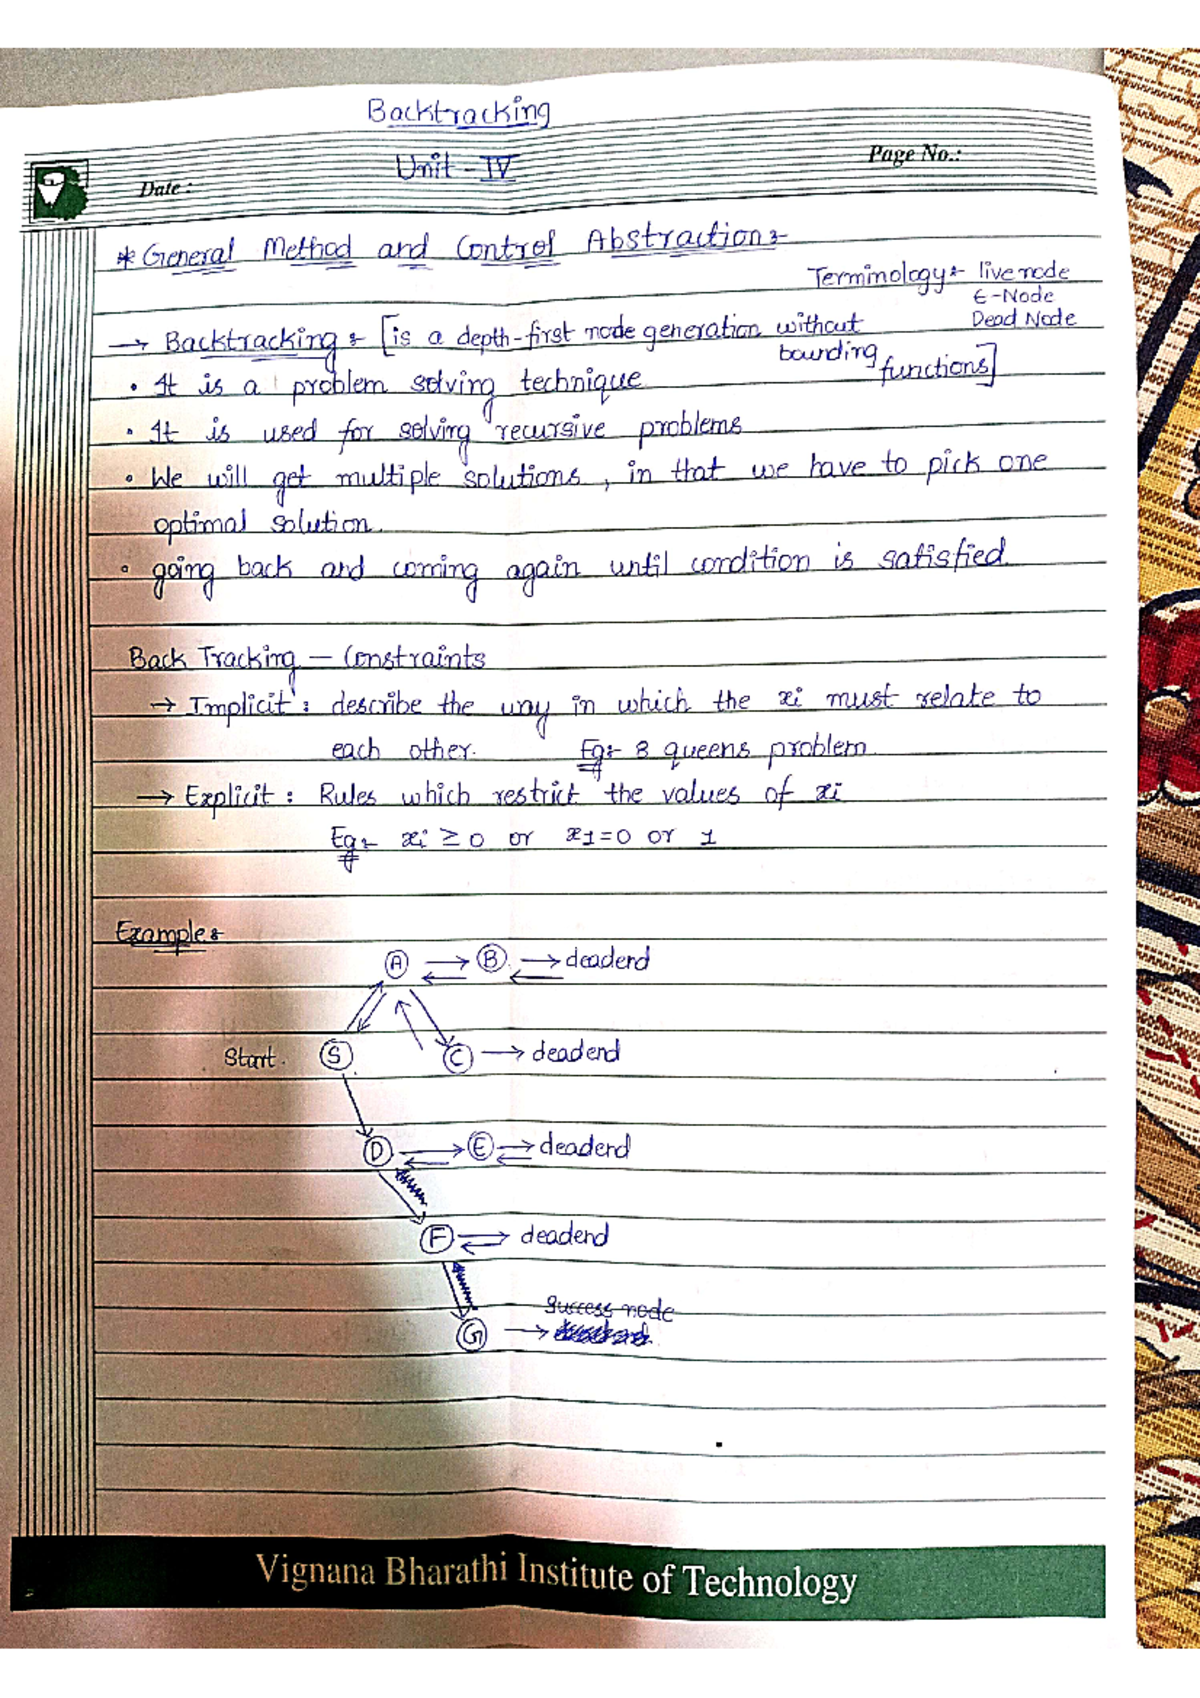 Backtracking
Unit - IV
Page No.:
Date :
* General Method and Control Abstraction:-
Terminology:- live node
E-Node
Dead Node
→ Backtracking :- [is a depth-first node generation without
bounding functions]
• It is a problem solving technique
• It is used for solving recursive problems
• We will get multiple solutions, in that we have to pick one
optimal solution.
• going back and coming again until condition is satisfied.
Back Tracking — Constraints
→ Implicit : describe the way in which the xi must relate to
each other. Eg:- 8 queens problem
→ Explicit : Rules which restrict the values of xi
Eg:- xi ≥ 0 or x1=0 or 1
Example:-
A → B → deadend
Start. S C → deadend
D → E → deadend
F → deadend
success node
G →
Vignana Bharathi Institute of Technology